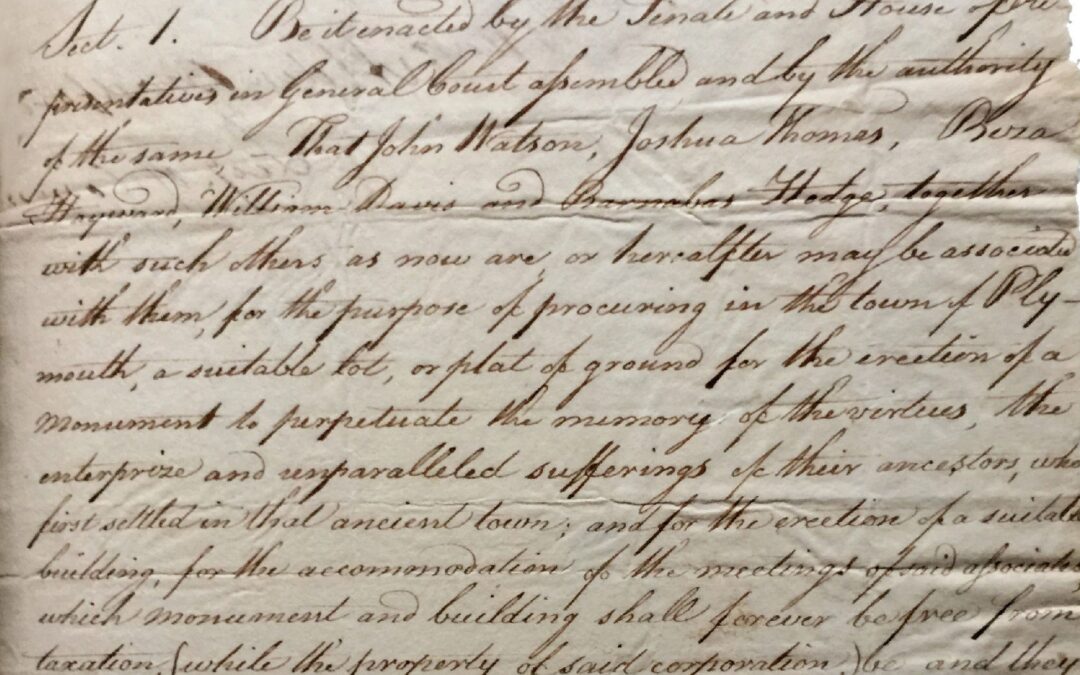 Sect. 1. Be it enacted by the Senate and House of Re-
presentatives in General Court assembled and by the authority
of the same That John Watson, Joshua Thomas, Beza
Hayward, William Davis and Barnabas Hedge, together
with such others as now are, or hereafter may be associated
with them, for the purpose of procuring in the town of Ply-
mouth, a suitable lot, or plat of ground for the erection of a
monument to perpetuate the memory of the virtues, the
enterprize and unparalleled sufferings of their ancestors, who
first settled in that ancient town; and for the erection of a suitable
building, for the accommodation of the meetings of said associates,
which monument and building shall forever be free from
taxation, (while the property of said corporation,) be and they